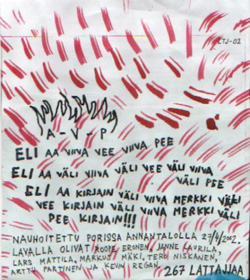 LTJ-02
A-V-P
ELI AA VIIVA VEE VIIVA PEE
ELI AA VÄLI VIIVA VÄLI VEE VÄLI VIIVA
VÄLI PEE
ELI AA KIRJAIN VÄLI VIIVA MERKKI VÄLI
VEE KIRJAIN VÄLI VIIVA MERKKI VÄLI
PEE KIRJAIN!!!
NAUHOITETTU PORISSA ANNANTALOLLA 27/4/2002.
LAVALLA OLIVAT: ROOPE ERONEN, JANNE LAURILA,
LARS MATTILA, MARKUS MÄKI, TERO NISKANEN,
ARTTU PARTINEN JA KEVIN REGAN.
267 LATTAJJAA